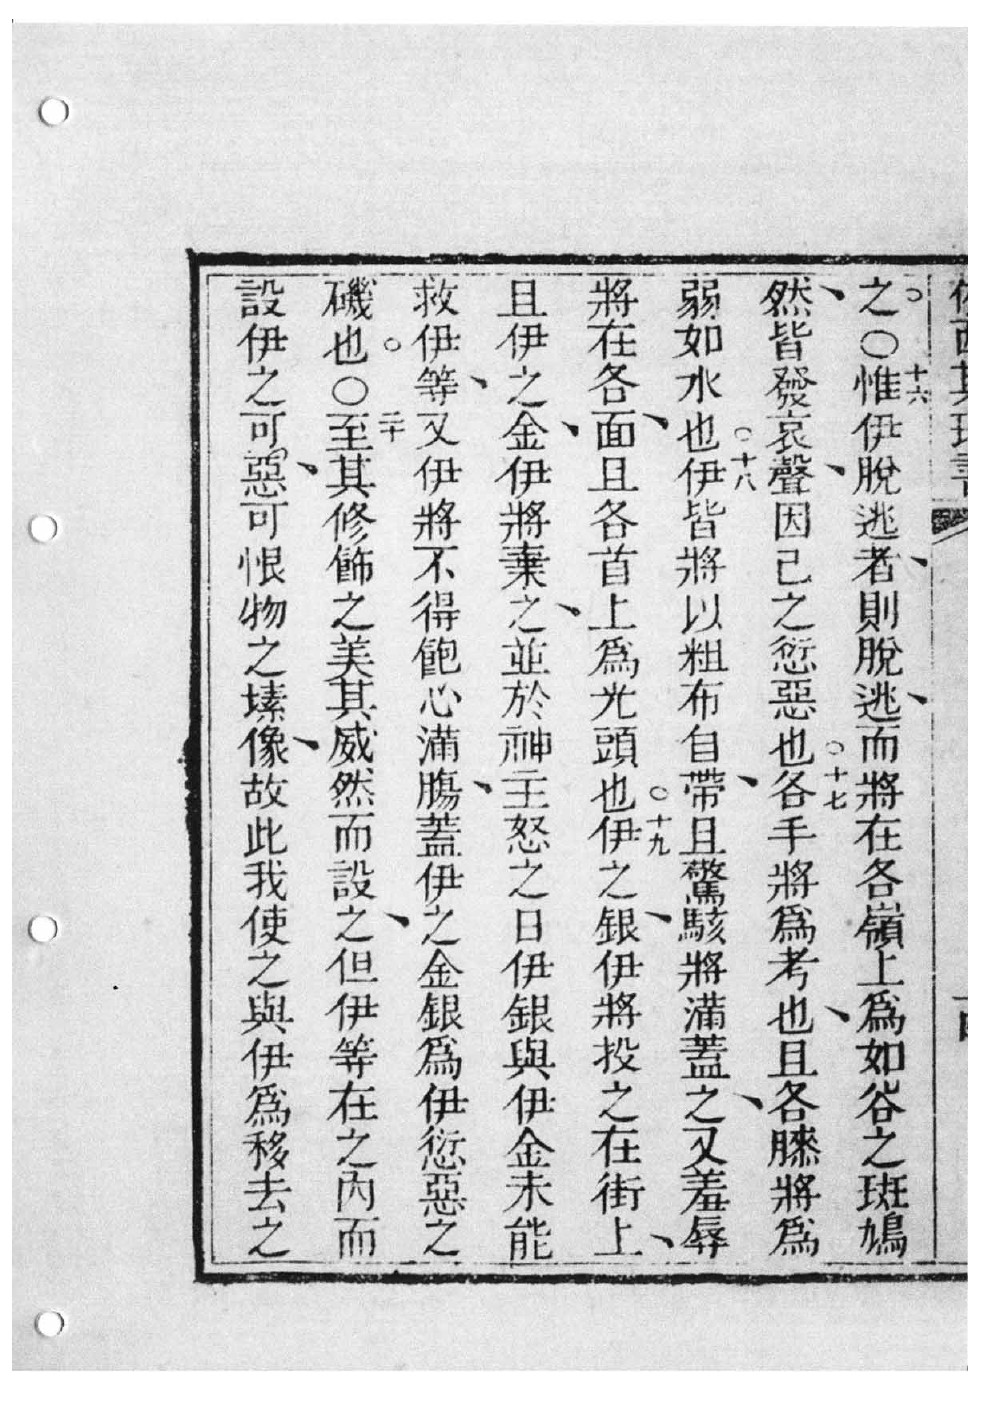 之○十六惟伊脫逃者則脫逃而將在各嶺上爲如谷之斑鳩
然皆發哀聲因己之愆惡也○十七各手將爲考也且各膝將爲
弱如水也○十八伊皆將以粗布自帶且驚駭將滿蓋之又羞辱
將在各面且各首上爲光頭也○十九伊之銀伊將投之在街上
且伊之金伊將棄之並於神主怒之日伊銀與伊金未能
救伊等又伊將不得飽心滿膓蓋伊之金銀爲伊愆惡之
磯也○二十至其修飾之美其威然而設之但伊等在之內而
設伊之可惡可恨物之塐像故此我使之與伊爲移去之